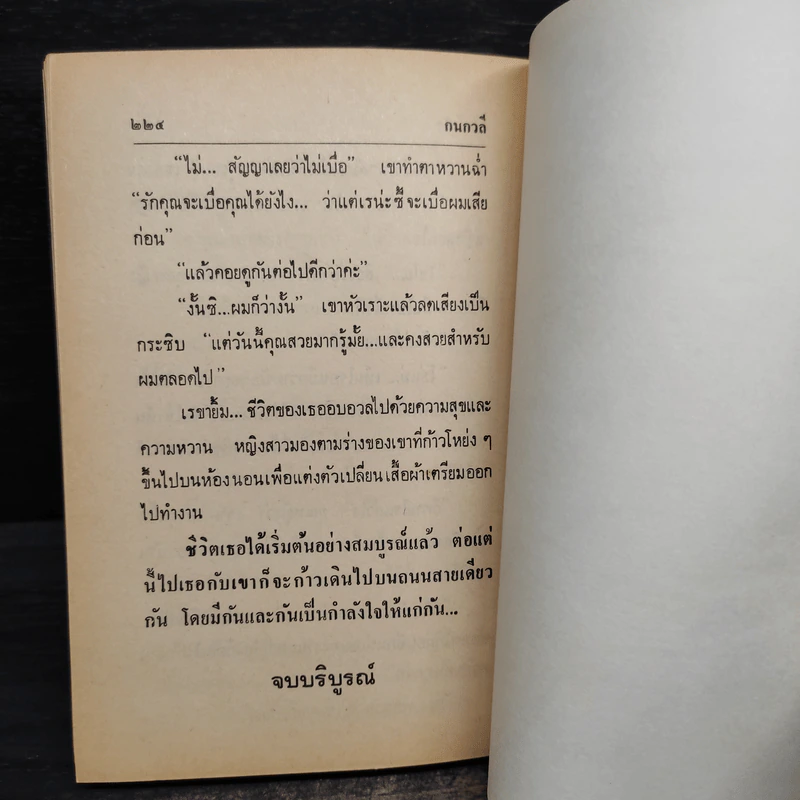 ๒๒๔ กนกวลี
“ไม่... สัญญาเลยว่าไม่เบื่อ” เขาทำตาหวานฉ่ำ
“รักคุณจะเบื่อคุณได้ยังไง... ว่าแต่เรน่ะซี้จะเบื่อผมเสีย
ก่อน”
“แล้วคอยดูกันต่อไปดีกว่าค่ะ”
“งั้นซิ...ผมก็ว่างั้น” เขาหัวเราะแล้วลดเสียงเป็น
กระซิบ “แต่วันนี้คุณสวยมากรู้มั้ย...และคงสวยสำหรับ
ผมตลอดไป”
เรขายิ้ม... ชีวิตของเธออบอวลไปด้วยความสุขและ
ความหวาน หญิงสาวมองตามร่างของเขาที่ก้าวโหย่ง ๆ
ขึ้นไปบนห้องนอนเพื่อแต่งตัวเปลี่ยนเสื้อผ้าเตรียมออก
ไปทำงาน
ชีวิตเธอได้เริ่มต้นอย่างสมบูรณ์แล้ว ต่อแต่
นี้ไปเธอกับเขาก็จะก้าวเดินไปบนถนนสายเดียว
กัน โดยมีกันและกันเป็นกำลังใจให้แก่กัน...
จบบริบูรณ์